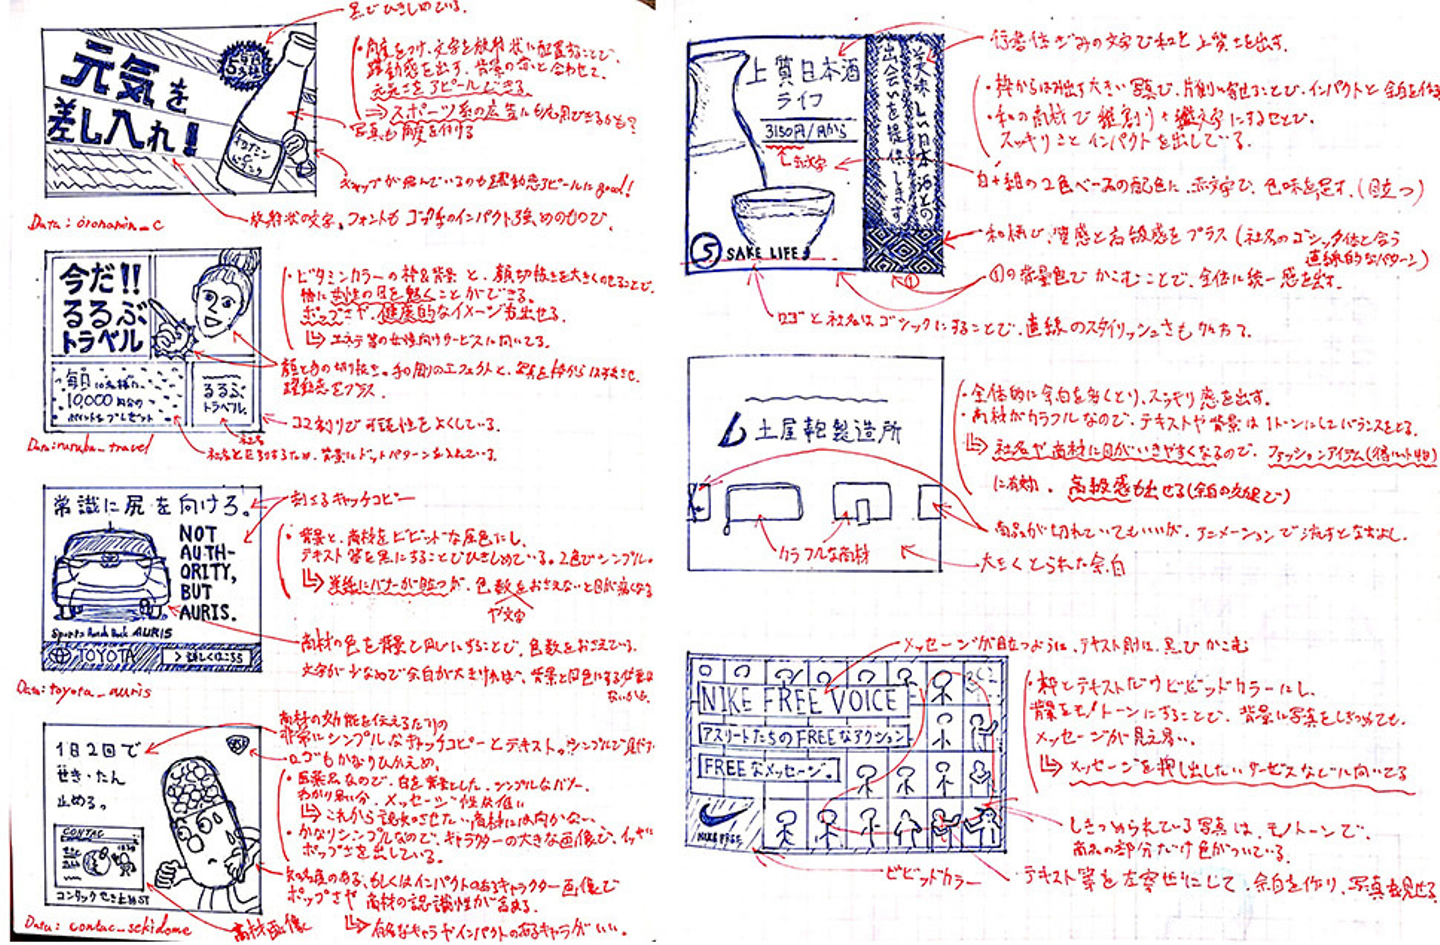 黒でひきしめている。
元気を
差し入れ!
・角度をつけ、文字を放射状に配置することで、
躍動感を出す。背景の赤と合わせて、
元気さをアピールできる。
⇒スポーツ系の広告にも応用ができるかも?
写真も角度を付ける
キャップが飛んでいるのも躍動感アピールにgood!
放射状の文字。フォントもゴシック系のインパクト強めのもので。
Data: oronamin_c
今だ!!
るるぶ
トラベル
毎日
10,000
るるぶ
トラベル
・ビタミンカラーの枠&背景と、顔切抜きを大きくのせることで、
特に女性の目を惹くことができる。
ポップさや、健康的なイメージも出せる。
↳エステ等の女性向けサービスに向いてる。
顔と手の切抜き。手の周りのエフェクトと、写真を枠からはみ出させ、
躍動感をプラス。
コマ割りで可読性をよくしている。
社名
社名と区別するため、背景にドットパターンを入れている。
Data: rurubu_travel
常識に尻を向けろ。
NOT
AUTH-
ORITY,
BUT
AURIS.
AURIS
TOYOTA
>詳しくはこちら
キャッチコピー
・背景と、商材をビビッドな同色にし、
テキスト等を黒にすることでひきしめている。2色でシンプル。
↳単純にバナーが目立つが、色数をおさえないと目が痛くなる
や文字
商材の色を背景と同じにすることで、色数をおさえている。
文字が少なめで余白が大きければ、背景と同色にする必要は
ないかも。
Data: toyota_auris
1日2回で
せき・たん
止める。
CONTAC
コンタックせき止めST
商材の効能を伝えるための
非常にシンプルなキャッチコピーとテキスト。
ロゴもかなりひかえめ。
・医薬品なので、白を背景とした、シンプルなバナー。
わかり易い分、メッセージ性は低い
↳これから認知させたい商材には向かない。
・かなりシンプルなので、キャラクターの大きな画像で、
ポップさを出している。
知名度のある、もしくはインパクトのあるキャラクター画像で
ポップさや商材の認識性が高める。
↳有名なキャラやインパクトのあるキャラがいい。
商材画像
Data: contac_sekidome
上質日本酒
ライフ
3150円/月から
赤文字
美味しい日本酒との
出会いを提供します
S SAKE LIFE
行書体ぎみの文字で和と上質さを出す。
・枠からはみ出す大きい写真で、片側に寄せることで、インパクトと余白を作る
・和の商材で縦割り+縦文字にすることで、
スッキリさとインパクトを出している。
白+紺の2色ベースの配色に、赤文字で、色味を足す。(目立つ)
和柄で、質感と高級感をプラス(社名のゴシック体と合う
直線的なパターン)
①
①の背景色でかこむことで、全体に統一感を出す。
ロゴと社名はゴシックにすることで、直線のスタイリッシュさも
土屋鞄製造所
カラフルな商材
・全体的に余白を多くとり、スッキリ感を出す。
・商材がカラフルなので、テキストや背景は1トーンにしてバランスをとる。
↳社名や商材に目がいきやすくなるので、ファッションアイテム
に有効。高級感も出せる(余白の効果で)
商品が切れていてもいいが、アニメーションで流すとなお良し。
大きくとられた余白
NIKE FREE VOICE
アスリートたちのFREEなアクション
FREEなメッセージ。
NIKE FREE
メッセージが目立つように、テキスト周りは、黒でかこむ
・枠とテキストだけビビッドカラーにし、
背景をモノトーンにすることで、背景に写真をしきつめても、
メッセージが見え易い。
↳メッセージを押し出したいサービスなどに向いてる
しきつめられている写真は、モノトーンで、
商品の部分だけ色がついている。
ビビッドカラー
テキスト等を左寄せにして、余白を作り、写真を見せる